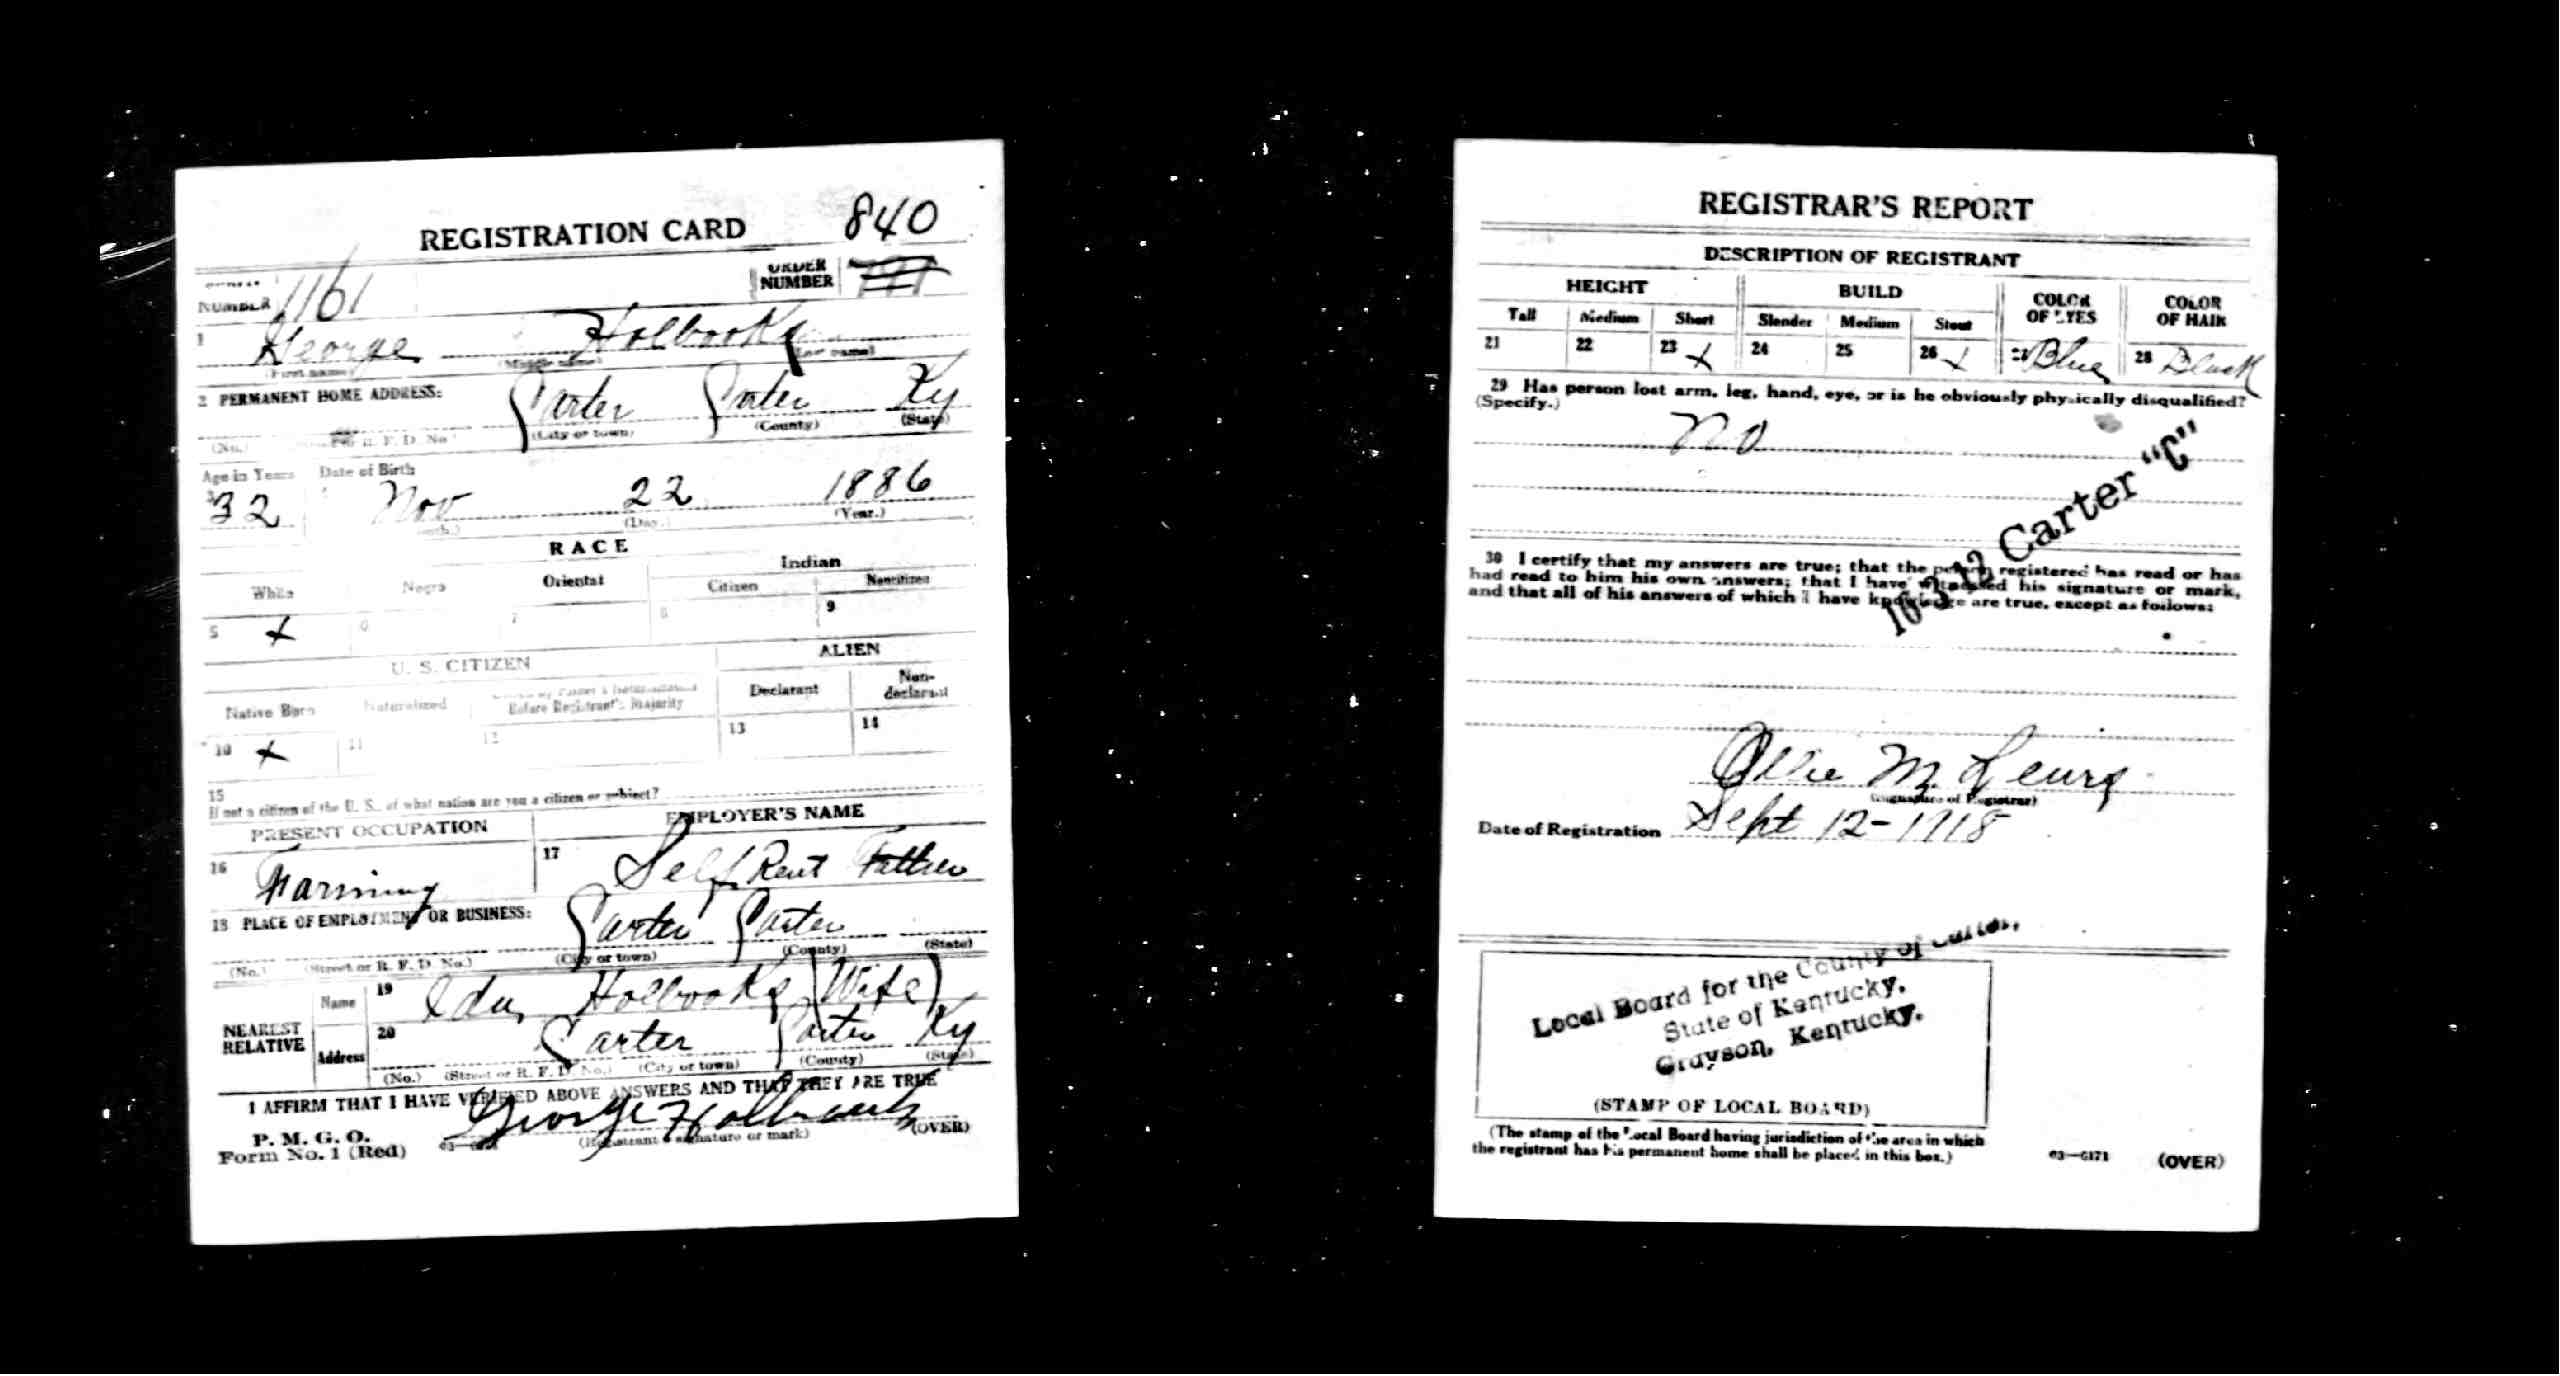 REGISTRATION CARD 840
NUMBER 1161 ORDER NUMBER
1 George Holbrooks
(First name) (Middle name) (Last name)
2 PERMANENT HOME ADDRESS: Carter Carter Ky
(No.) R. F. D. No. (City or town) (County) (State)
Age in Years Date of Birth
32 Nov 22 1886
(Day.) (Year.)
RACE
White Negro Oriental Indian
Citizen Noncitizen
5 X 6 7 8 9
U. S. CITIZEN ALIEN
Native Born Naturalized Citizen by Father's Naturalization Before Registrant's Majority Declarant Non-declarant
10 X 11 12 13 14
15
If not a citizen of the U. S., of what nation are you a citizen or subject?
PRESENT OCCUPATION EMPLOYER'S NAME
16 Farming 17 Self Rent Father
18 PLACE OF EMPLOYMENT OR BUSINESS: Carter Carter
(No.) (Street or R. F. D. No.) (City or town) (County) (State)
NEAREST RELATIVE Name 19 Ida Holbrooks (Wife)
Address 20 Carter Carter Ky
(No.) (Street or R. F. D. No.) (City or town) (County) (State)
I AFFIRM THAT I HAVE VERIFIED ABOVE ANSWERS AND THAT THEY ARE TRUE
P. M. G. O.
Form No. 1 (Red) George Holbrooks
(Registrant's signature or mark) (OVER)
REGISTRAR'S REPORT
DESCRIPTION OF REGISTRANT
HEIGHT BUILD COLOR OF EYES COLOR OF HAIR
Tall Medium Short Slender Medium Stout
21 22 23 X 24 25 26 X 27 Blue 28 Black
29 Has person lost arm, leg, hand, eye, or is he obviously physically disqualified?
(Specify.)
No
16-3-12 Carter "C"
30 I certify that my answers are true; that the person registered has read or has
had read to him his own answers; that I have witnessed his signature or mark,
and that all of his answers of which I have knowledge are true, except as follows:
Ollie M. Lewis
(Signature of Registrar)
Date of Registration Sept 12-1918
Local Board for the County of Carter,
State of Kentucky,
Grayson, Kentucky.
(STAMP OF LOCAL BOARD)
(The stamp of the Local Board having jurisdiction of the area in which
the registrant has his permanent home shall be placed in this box.)
03—6171 (OVER)